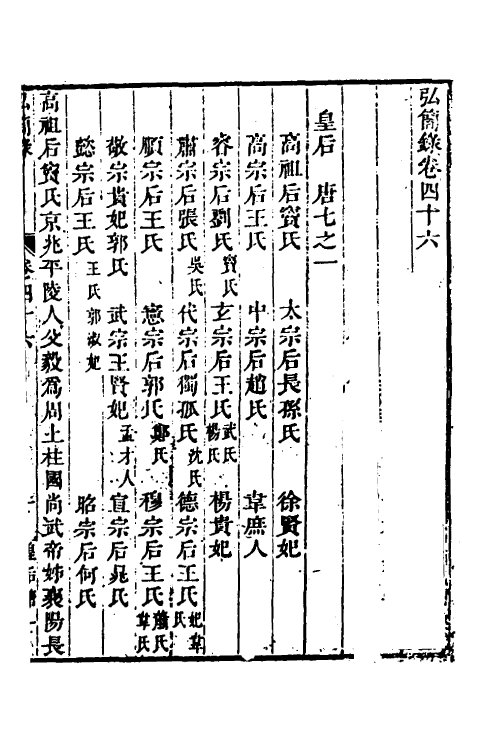 弘簡錄卷四十六
皇后　唐七之一
高祖后竇氏　太宗后長孫氏　徐賢妃
高宗后王氏　中宗后趙氏　韋庶人
睿宗后劉氏　竇氏　玄宗后王氏　武氏　楊氏　楊貴妃
肅宗后張氏　吳氏　代宗后獨孤氏　沈氏　德宗后王氏　妃韋氏
順宗后王氏　憲宗后郭氏　鄭氏　穆宗后王氏　蕭氏　韋氏
敬宗貴妃郭氏　武宗王賢妃　孟才人　宣宗后晁氏
懿宗后王氏　王氏　郭淑妃　昭宗后何氏
高祖后竇氏京兆平陵人父毅爲周上柱國尚武帝姊襄陽長
弘簡錄　卷四十六　皇后唐一